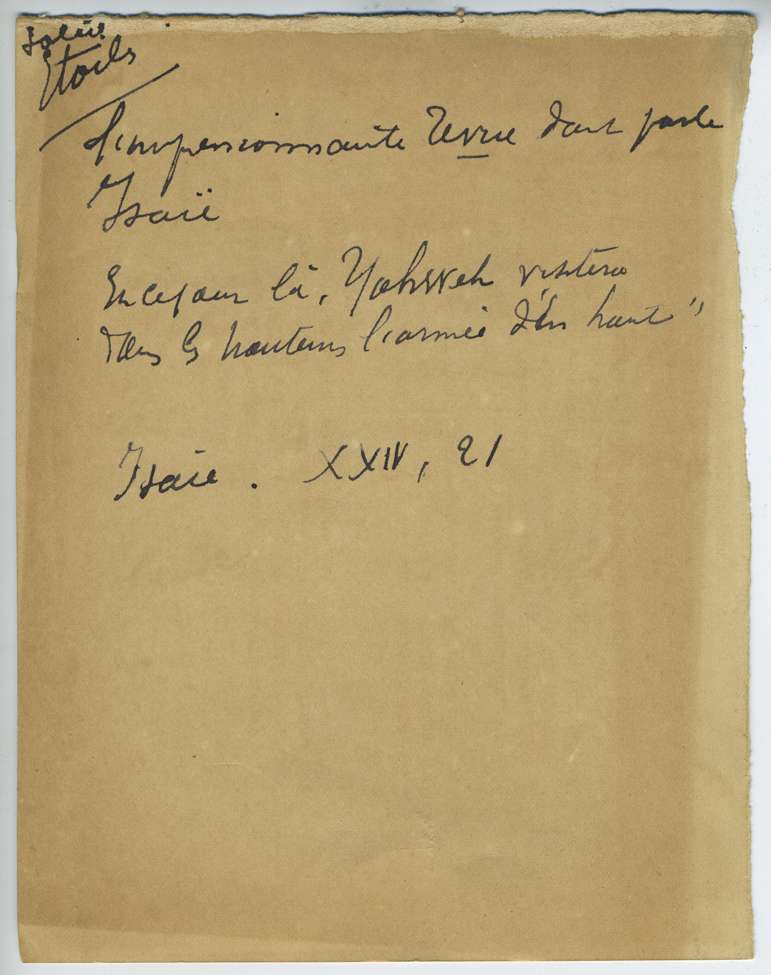 Soleil
Etoiles
L'impressionnante Revue dont parle
Isaïe
En ce jour là, Yahweh visitera
dans les hauteurs l'armée d'En haut"
Isaïe. XXIV, 21